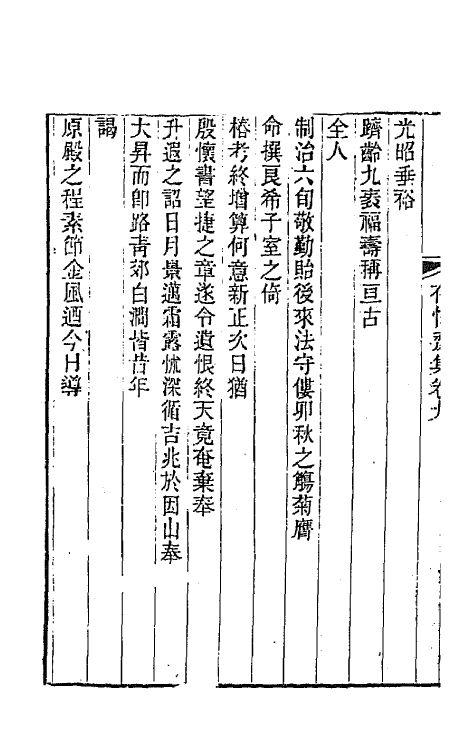 存悔齋集卷九
光昭垂裕
躋齡九袠福壽稱亘古
全人
制治六旬敬勤貽後來法守僂卯秋之觴菊膺
命撰艮希子室之倚
椿考終增算何意新正次日猶
殷懷書望捷之章遂令遺恨終天竟奄棄奉
升遐之詔日月景邁霜露怵深循吉兆於因山奉
大昇而卽路青郊白澗皆昔年
謁
原殿之程素節金風迺今日導